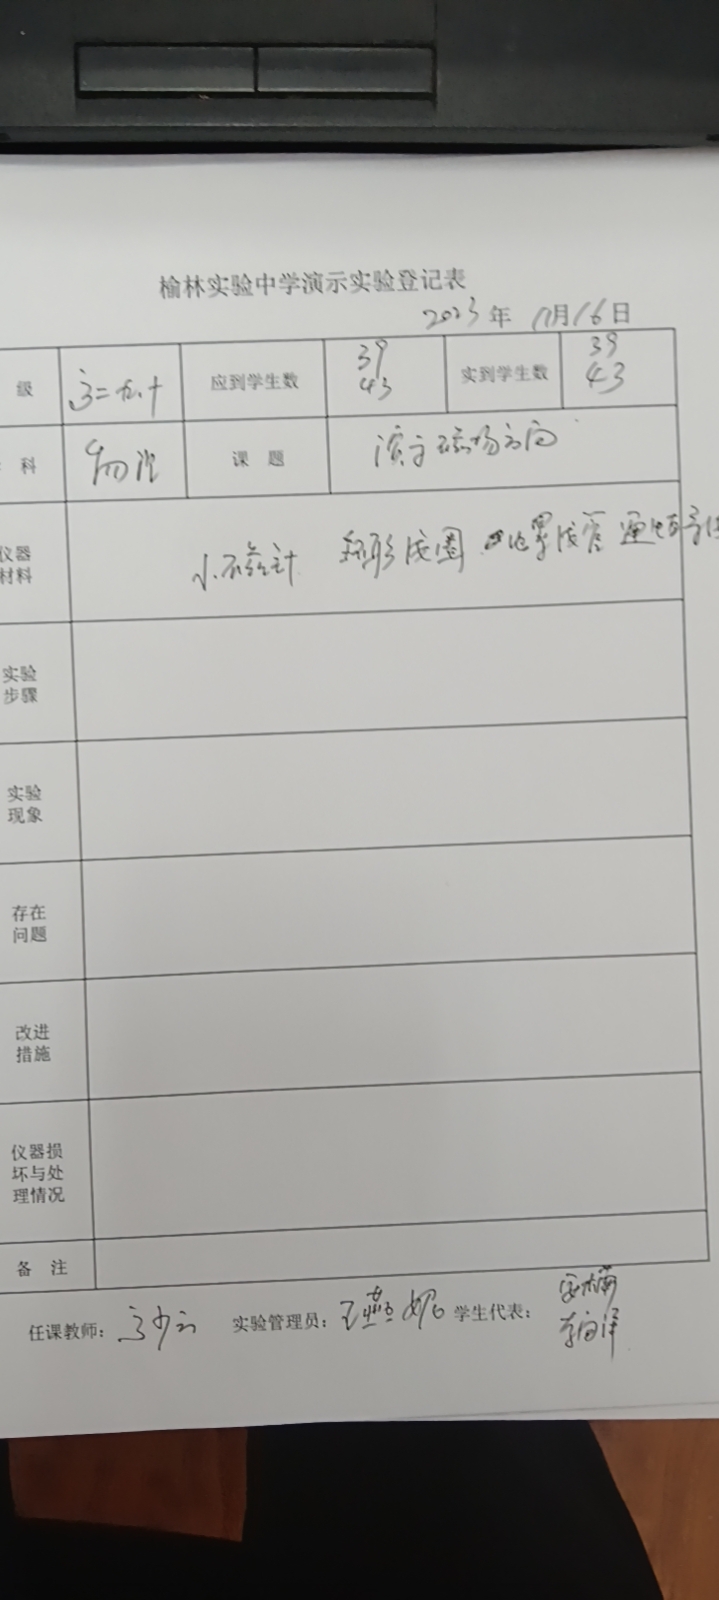 榆林实验中学演示实验登记表
2023年 11月16日
级 高二九.十 应到学生数 39 43 实到学生数 39 43
科 物理 课 题 演示磁场方向
仪器
材料
小磁针 环形线圈 螺线管 通电导
实验
步骤
实验
现象
存在
问题
改进
措施
仪器损
坏与处
理情况
备 注
任课教师: 实验管理员: 王燕妮 学生代表: